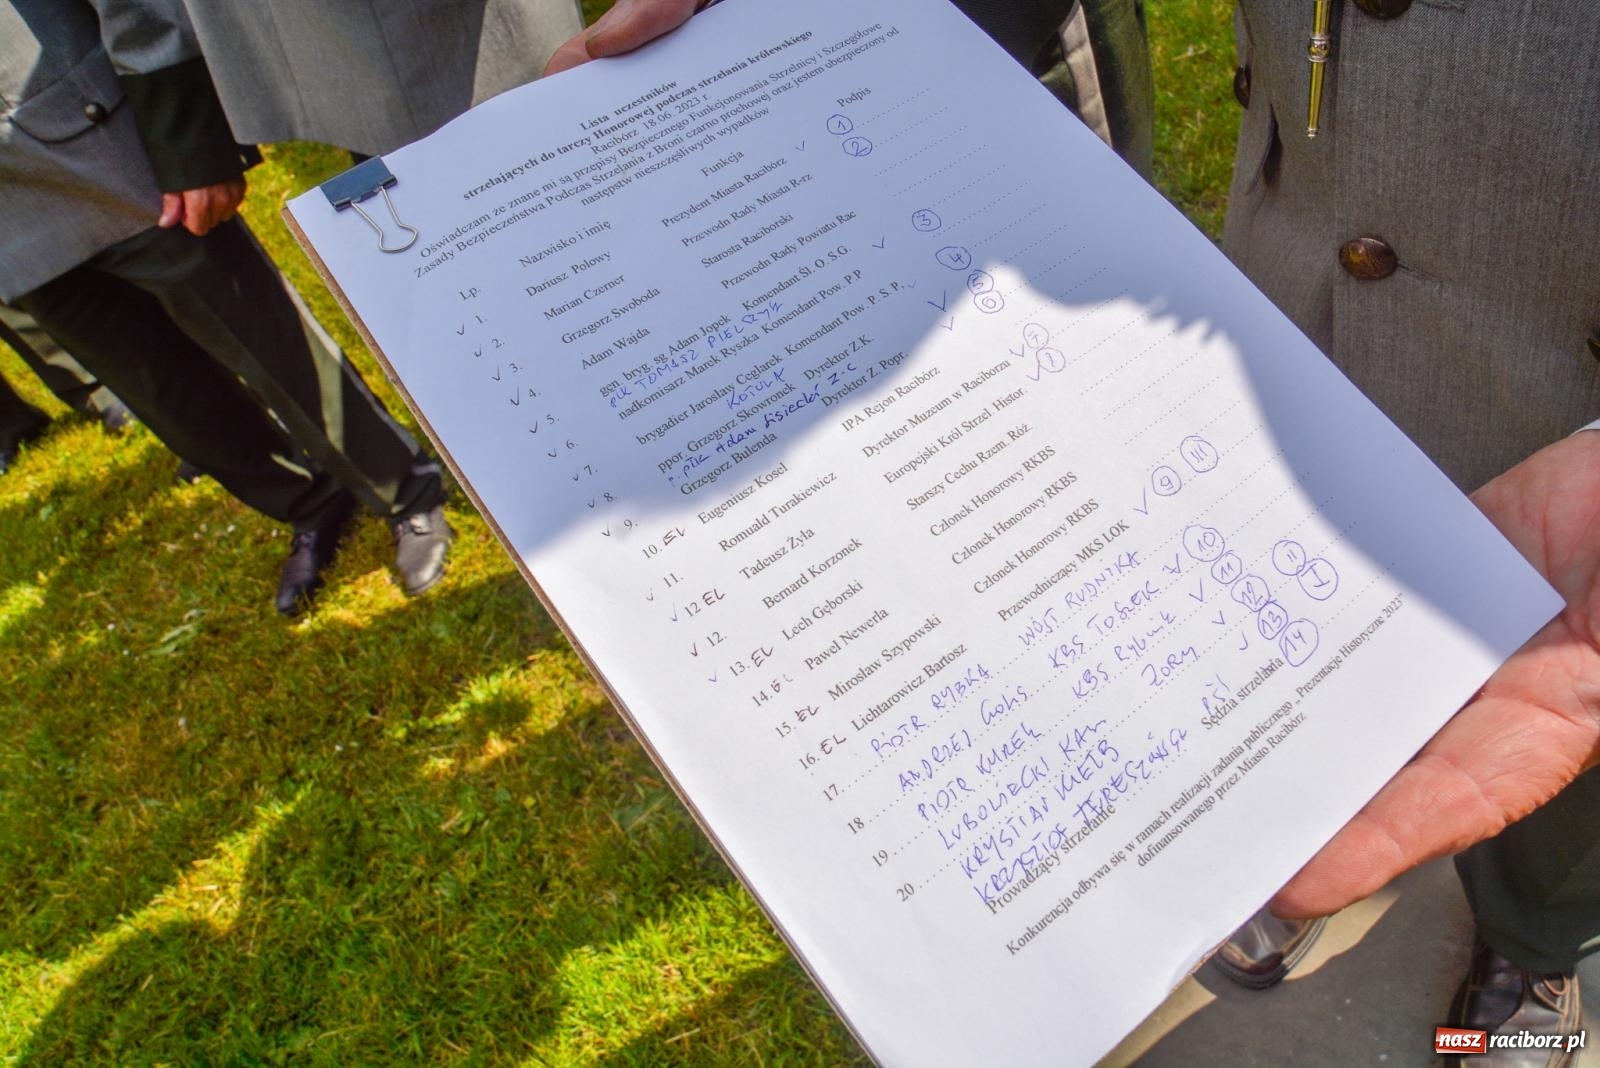 Lista uczestników
strzelających do tarczy Honorowej podczas strzelania królewskiego
Racibórz 18.06. 2023 r.
Oświadczam że znane mi są przepisy Bezpiecznego Funkcjonowania Strzelnicy i Szczegółowe
Zasady Bezpieczeństwa Podczas Strzelania z Broni czarno prochowej oraz jestem ubezpieczony od
następstw nieszczęśliwych wypadków
Lp. Nazwisko i imię Funkcja Podpis
1. Dariusz Polowy Prezydent Miasta Racibórz 1
2. Marian Czerner Przewodn Rady Miasta R-rz 2
3. Grzegorz Swoboda Starosta Raciborski
4. Adam Wajda Przewodn Rady Powiatu Rac 3
5. gen. bryg. sg Adam Jopek Komendant Śl. O. S.G. 4
płk TOMASZ PIELSZYK
6. nadkomisarz Marek Ryszka Komendant Pow. P.P 5
7. brygadier Jarosław Ceglarek Komendant Pow. P. S. P. 6
KOTULA
8. ppor. Grzegorz Skowronek Dyrektor Z.K.
płk Adam Lisiecki Z.C
9. Grzegorz Bulenda Dyrektor Z. Popr.
10. EL Eugeniusz Kosel IPA Rejon Racibórz
11. Romuald Turakiewicz Dyrektor Muzeum w Raciborzu 7
12 EL Tadeusz Żyła Europejski Król Strzel. Histor.
12. Bernard Korzonek Starszy Cechu Rzem. Róż
13. EL Lech Gęborski Członek Honorowy RKBS
14. EL Paweł Newerla Członek Honorowy RKBS
15. EL Mirosław Szypowski Członek Honorowy RKBS
16. EL Lichtarowicz Bartosz Przewodniczący MKS LOK 9 III
17. PIOTR RYBKA WÓJT RUDNIKA
18 ANDRZEJ GOLIS KBS TOSZEK 10
19 PIOTR KUREK KBS RYBNIK 11
20 ŻORY 12 II
KRYSTIAN 13 I
KRZYSZTOF 14
Prowadzący strzelanie Sędzia strzelania
Konkurencja odbywa się w ramach realizacji zadania publicznego „ Prezentacje Historyczne 2023"
dofinansowanego przez Miasto Racibórz
nasz raciborz.pl